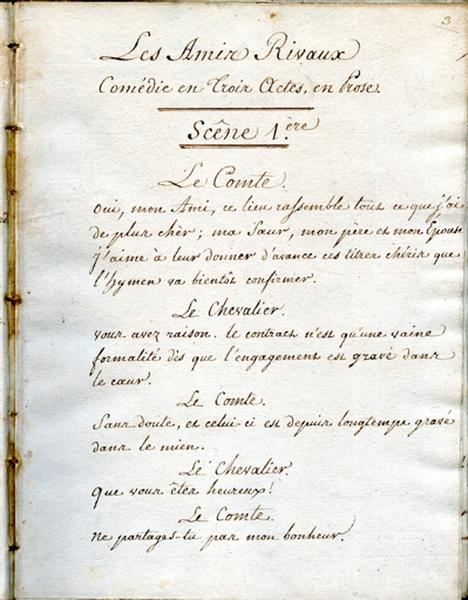 3
Les Amis Rivaux
Comédie en Trois Actes, en Prose.
Scêne 1.ère
Le Comte.
Oui, mon Ami, ce lieu rassemble tout ce que j'ai
de plus chèr; ma Sœur, mon père et mon Epouse
j'aime à leur donner d'avance ces titres chéris que
l'hymen va bientôt confirmer.
Le Chevalier.
vous avez raison. le contract n'est qu'une vaine
formalité dès que l'engagement est gravé dans
le cœur.
Le Comte.
Sans doute, et celui ci est depuis longtemps gravé
dans le mien.
Le Chevalier.
Que vous êtes heureux!
Le Comte.
Ne partages-tu pas mon bonheur.